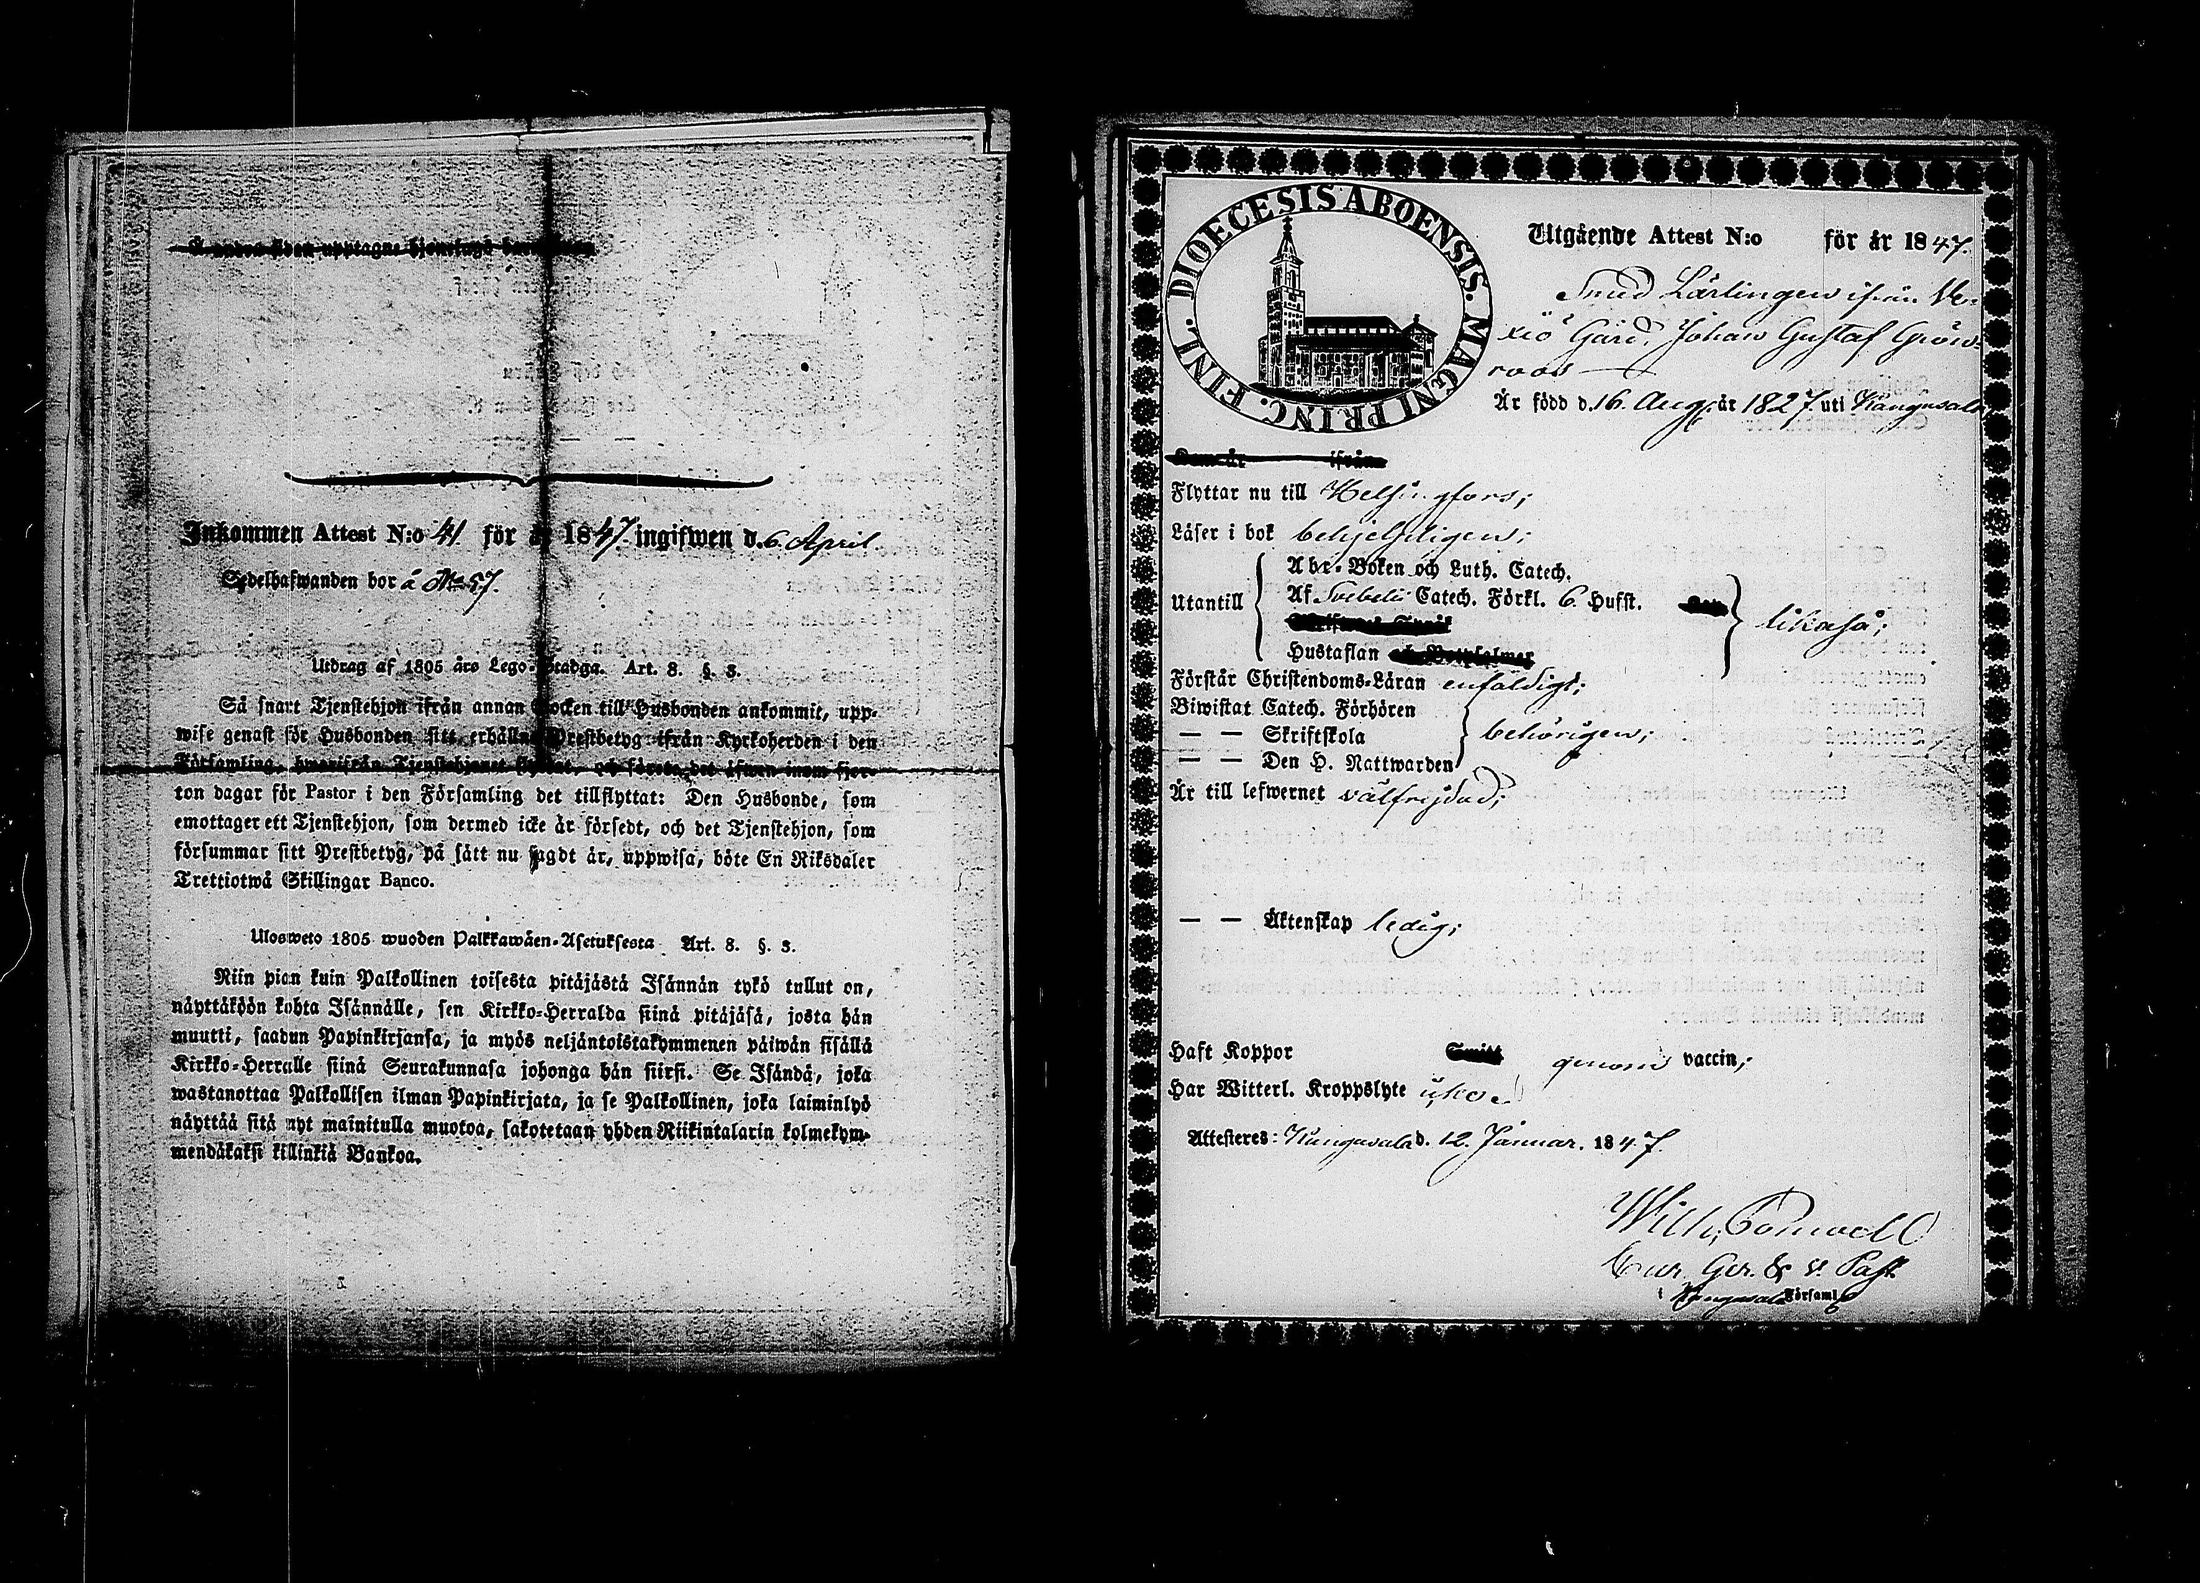 Inkommen Attest N:o 41 för år 1847 ingifwen d. 6. April.
Sedelhafwanden bor å No 57.
Utdrag af 1805 års Lego-Stadga. Art. 8. §. 3.
Så snart Tjenstehjon ifrån annan Socken till Husbonden ankommit, upp-
wise genast för Husbonden sitt erhållna Prestbetyg ifrån Kyrkoherden i den
Församling, hwarifrån Tjenstehjonet flyttat, och förete det äfwen inom fjor-
ton dagar för Pastor i den Församling det tillflyttat: Den Husbonde, som
emottager ett Tjenstehjon, som dermed icke är försedt, och det Tjenstehjon, som
försummar sitt Prestbetyg, på sätt nu sagdt är, uppwisa, böte En Riksdaler
Trettiotwå Skillingar Banco.
Ulosweto 1805 wuoden Palkkawäen-Asetuksesta Art. 8. §. 3.
Niin pian kuin Palkollinen toisesta pitäjästä Isännän tykö tullut on,
näyttäköön kohta Isännälle, sen Kirkko-Herralda siinä pitäjäsä, josta hän
muutti, saadun Papinkirjansa, ja myös neljäntoistakymmenen päiwän sisällä
Kirkko-Herralle siinä Seurakunnasa johonga hän siirsi. Se Isändä, joka
wastanottaa Palkollisen ilman Papinkirjata, ja se Palkollinen, joka laiminlyö
näyttää sitä nyt mainitulla muotoa, sakotetaan yhden Riikintalarin kolmekym-
mendäkaksi killinkiä Bankoa.
DIOECESIS ABOENSIS. MAGNI PRINC. FINL.
Utgående Attest N:o för år 1847.
Smed Lärlingen ifrån We-
xiö Gård, Johan Gustaf Grön-
roos
Är född d. 16. Aug. år 1827. uti Kangasala
Flyttar nu till Helsingfors;
Läser i bok behjelpligen;
Utantill
Abc-Boken och Luth. Catech.
Af Svebelii Catech. Förkl. 6. Hufst.
Hustaflan
likaså;
Förstår Christendoms-Läran enfaldigt;
Biwistat Catech. Förhören
— — Skriftskola
— — Den H. Nattwarden
behörigen;
Är till lefwernet välfrejdad;
— — Äktenskap ledig;
Haft Koppor genom vaccin;
Har Witterl. Kroppslyte icke.
Attesteres: Kangasala d. 12. Januar. 1847.
Wilh.
Cur. Ger. & v. Past.
i Kangasala Församl.